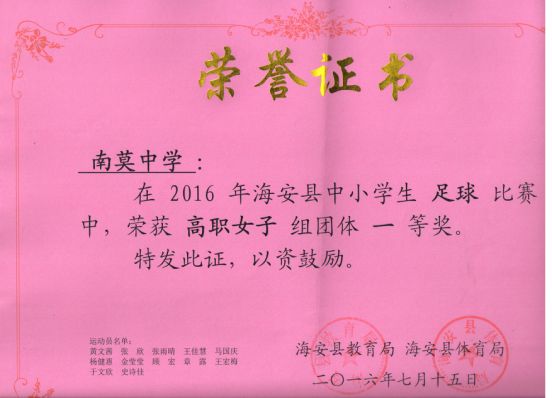 荣誉证书
南莫中学：
在 2016 年海安县中小学生 足球 比赛
中，荣获 高职女子 组团体 一 等奖。
特发此证，以资鼓励。
运动员名单：
黄文茜 张 欣 张雨晴 王佳慧 马国庆
杨健惠 金莹堂 顾 宏 章 露 王宏梅
于文欣 史诗佳
海安县教育局 海安县体育局
二〇一六年七月十五日